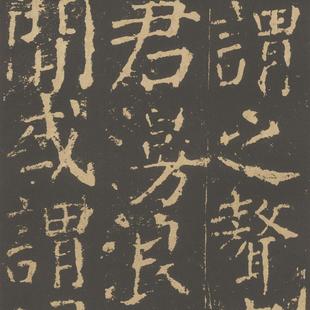 謂之聱
君漫浪
間或謂